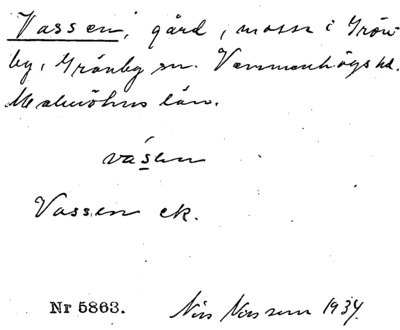 Vassen, gård, mosse i Grön-
by, Grönby sn. Vemmenhögs hd.
Malmöhus län.
vásen
Vassen ek.
Nr 5863. Nils 1934.